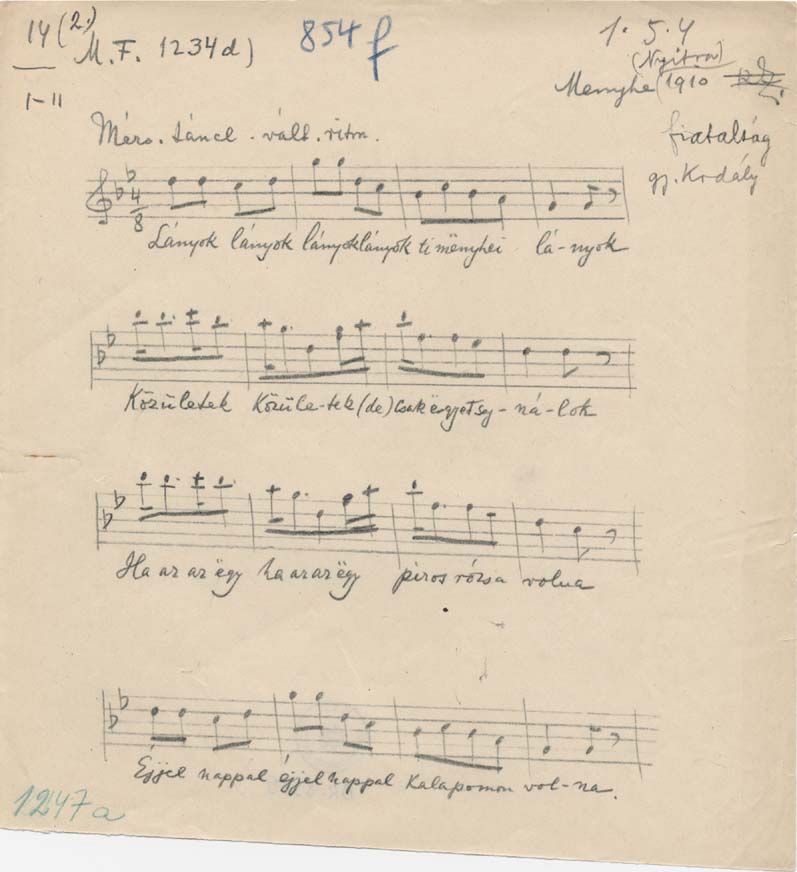 14 (2.)
M.F. 1234 d)
854 f
1. 5. 4
(Nyitra)
Menyhe 1910
I-II
fiatalság
gj. Kodály
Mérs. táncl. vált. ritm.
4
8
Lányok lányok lányok lányok ti mënyhei lá-nyok
Közületek Közüle-tek (de) Csak ëgyet saj-ná-lok
Ha az az ëgy ha az az ëgy piros rózsa volna
Éjjel nappal éjjel nappal Kalapomon vol-na.
1247a